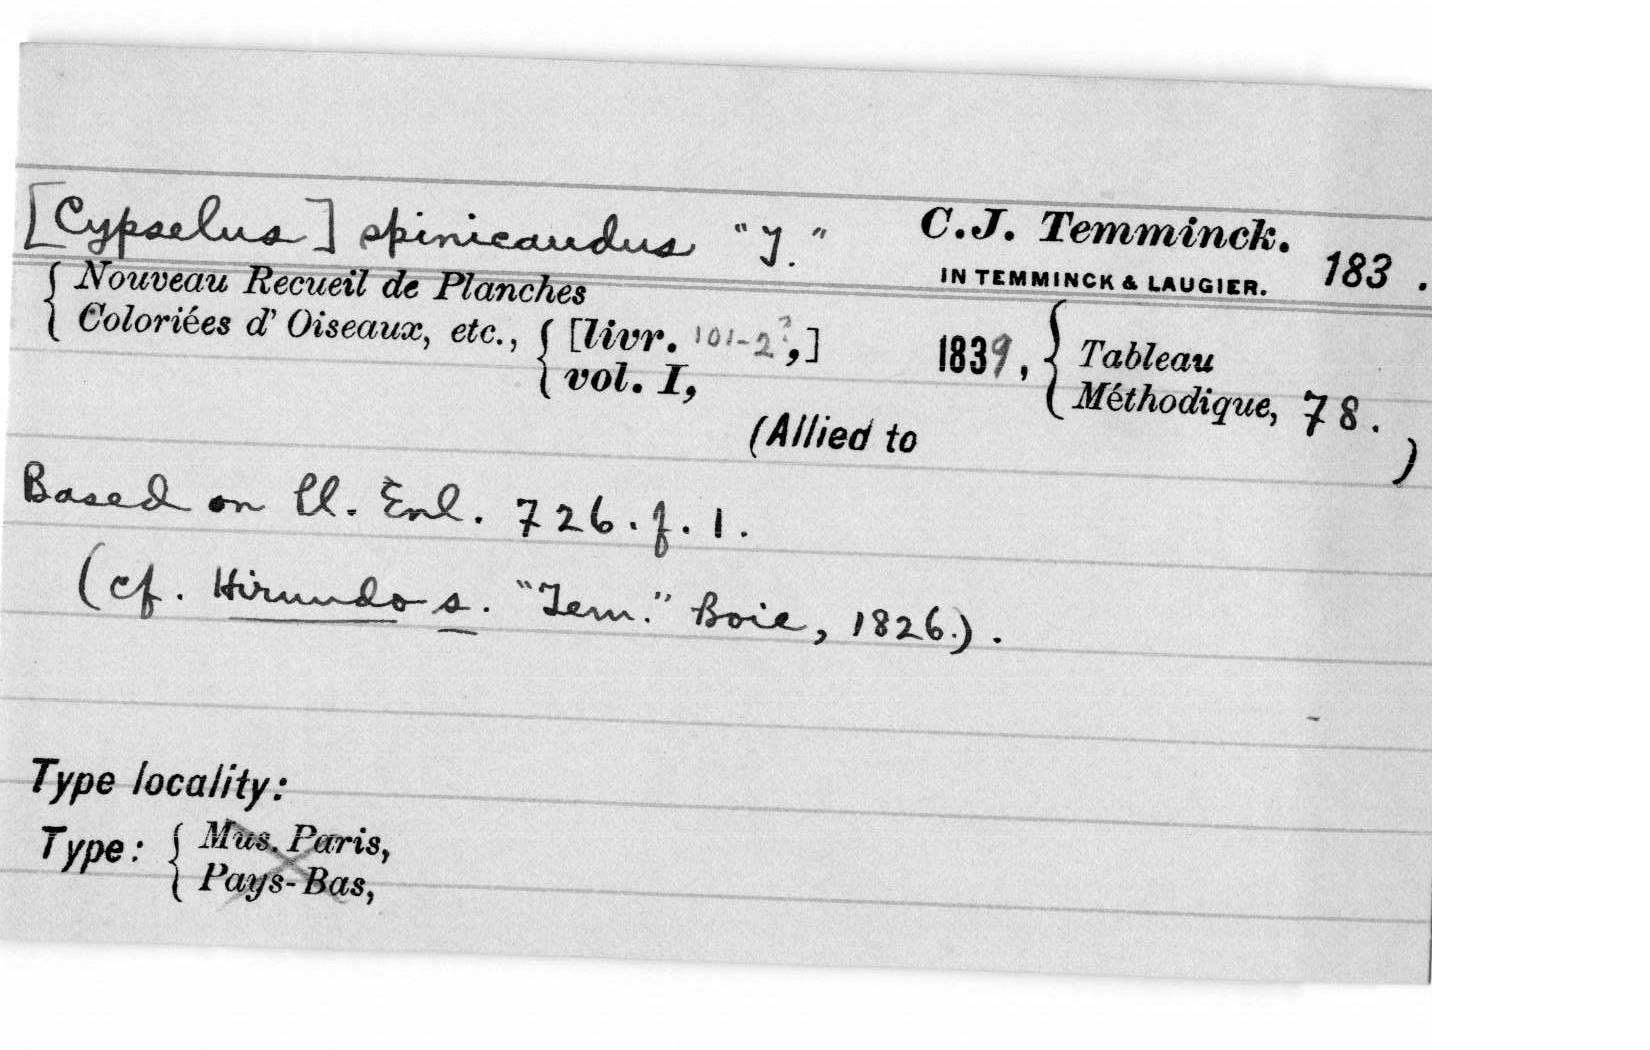 [Cypselus] spinicaudus "J." C.J. Temminck.
IN TEMMINCK & LAUGIER. 183 .
{ Nouveau Recueil de Planches
Coloriées d' Oiseaux, etc., { [livr. 101-2?,] 1839, { Tableau
vol. I, Méthodique, 78.
(Allied to )
Based on Pl. Enl. 726. f. 1.
(cf. Hirundo s. "Tem." Boie, 1826.).
Type locality:
Type: { Mus. Paris,
Pays-Bas,